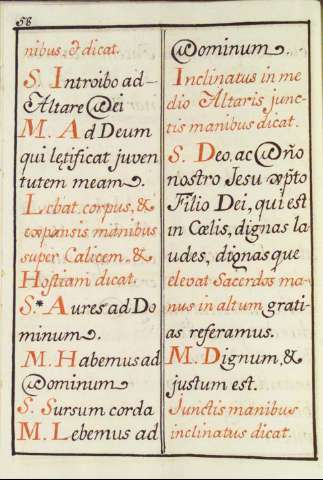 58
nibus, & dicat.
S. Introibo ad
Altare Dei
M. Ad Deum
qui lętificat juven
tutem meam.
Lebat corpus, &
expansis manibus
super Calicem, &
Hostiam dicat.
S.* Aures ad Do
minum.
M. Habemus ad
Dominum
S. Sursum corda
M. Lebemus ad
Dominum
Inclinatus in me
dio Altaris junc-
tis manibus dicat.
S. Deo, ac Dño
nostro Jesu xpto
Filio Dei, qui est
in Cœlis, dignas la
udes, dignas que
elevat Sacerdos ma-
nus in altum grati-
as referamus.
M. Dignum, &
justum est.
Junctis manibus
inclinatus dicat.